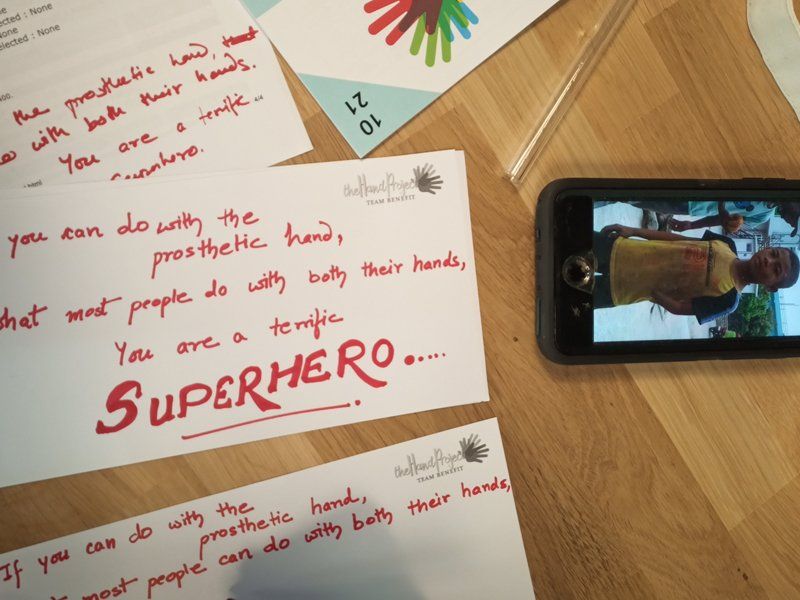 elected : None
None
elected : None
the prosthetic hand, that
with both their hands.
You are a terrific
4/4
10
21
the Hand Project
TEAM BENEFIT
you can do with the
prosthetic hand,
what most people do with both their hands,
You are a terrific
SUPERHERO.....
the Hand Project
TEAM BENEFIT
If you can do with the
prosthetic hand,
most people can do with both their hands,